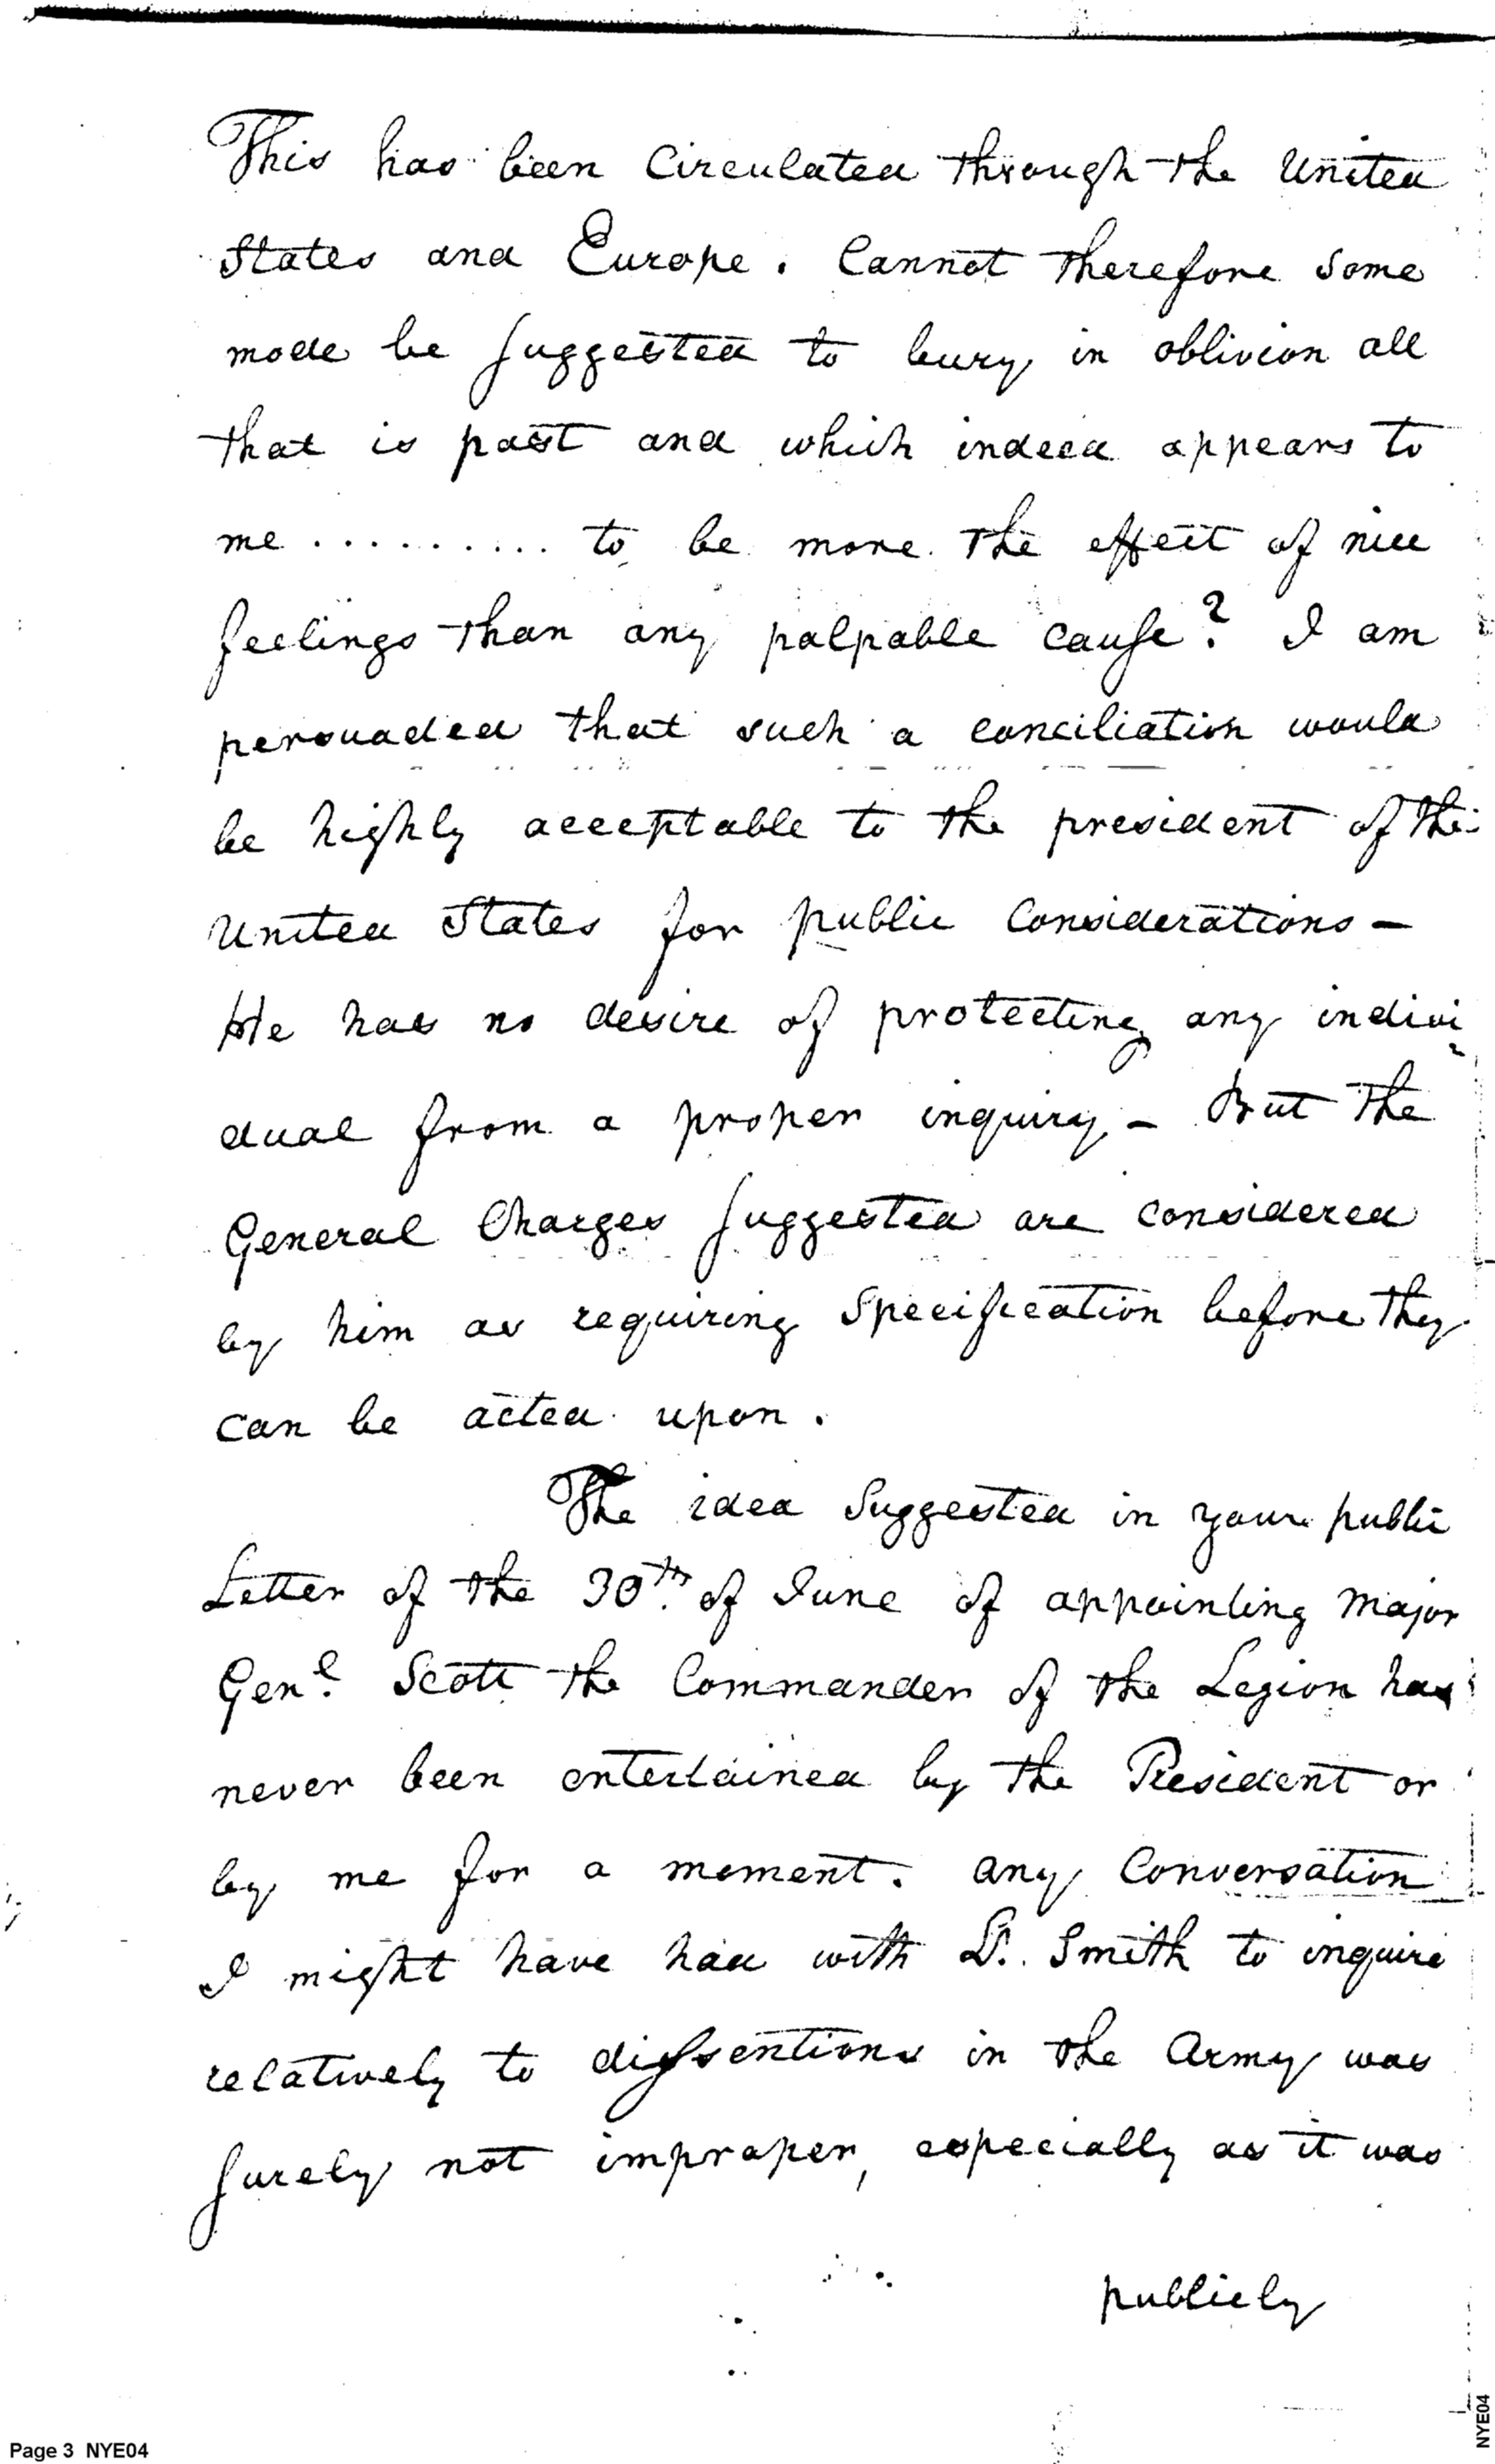 This has been Circulated through the United
States and Europe. Cannot therefore some
mode be suggested to bury in oblivion all
that is past and which indeed appears to
me .......... to be more the effect of nice
feelings than any palpable cause? I am
persuaded that such a conciliation would
be highly acceptable to the president of the
United States for public Considerations —
He has no desire of protecting any indivi
dual from a proper inquiry — But the
General Charges suggested are considered
by him as requiring Specification before they
can be acted upon.
The idea Suggested in your public
Letter of the 30th. of June of appointing Major
Genl. Scott the Commander of the Legion has
never been entertained by the President or
by me for a moment. any Conversation
I might have had with Lt. Smith to inquire
relatively to dissentions in the Army was
surely not improper, especially as it was
publicly
Page 3 NYE04
NYE04